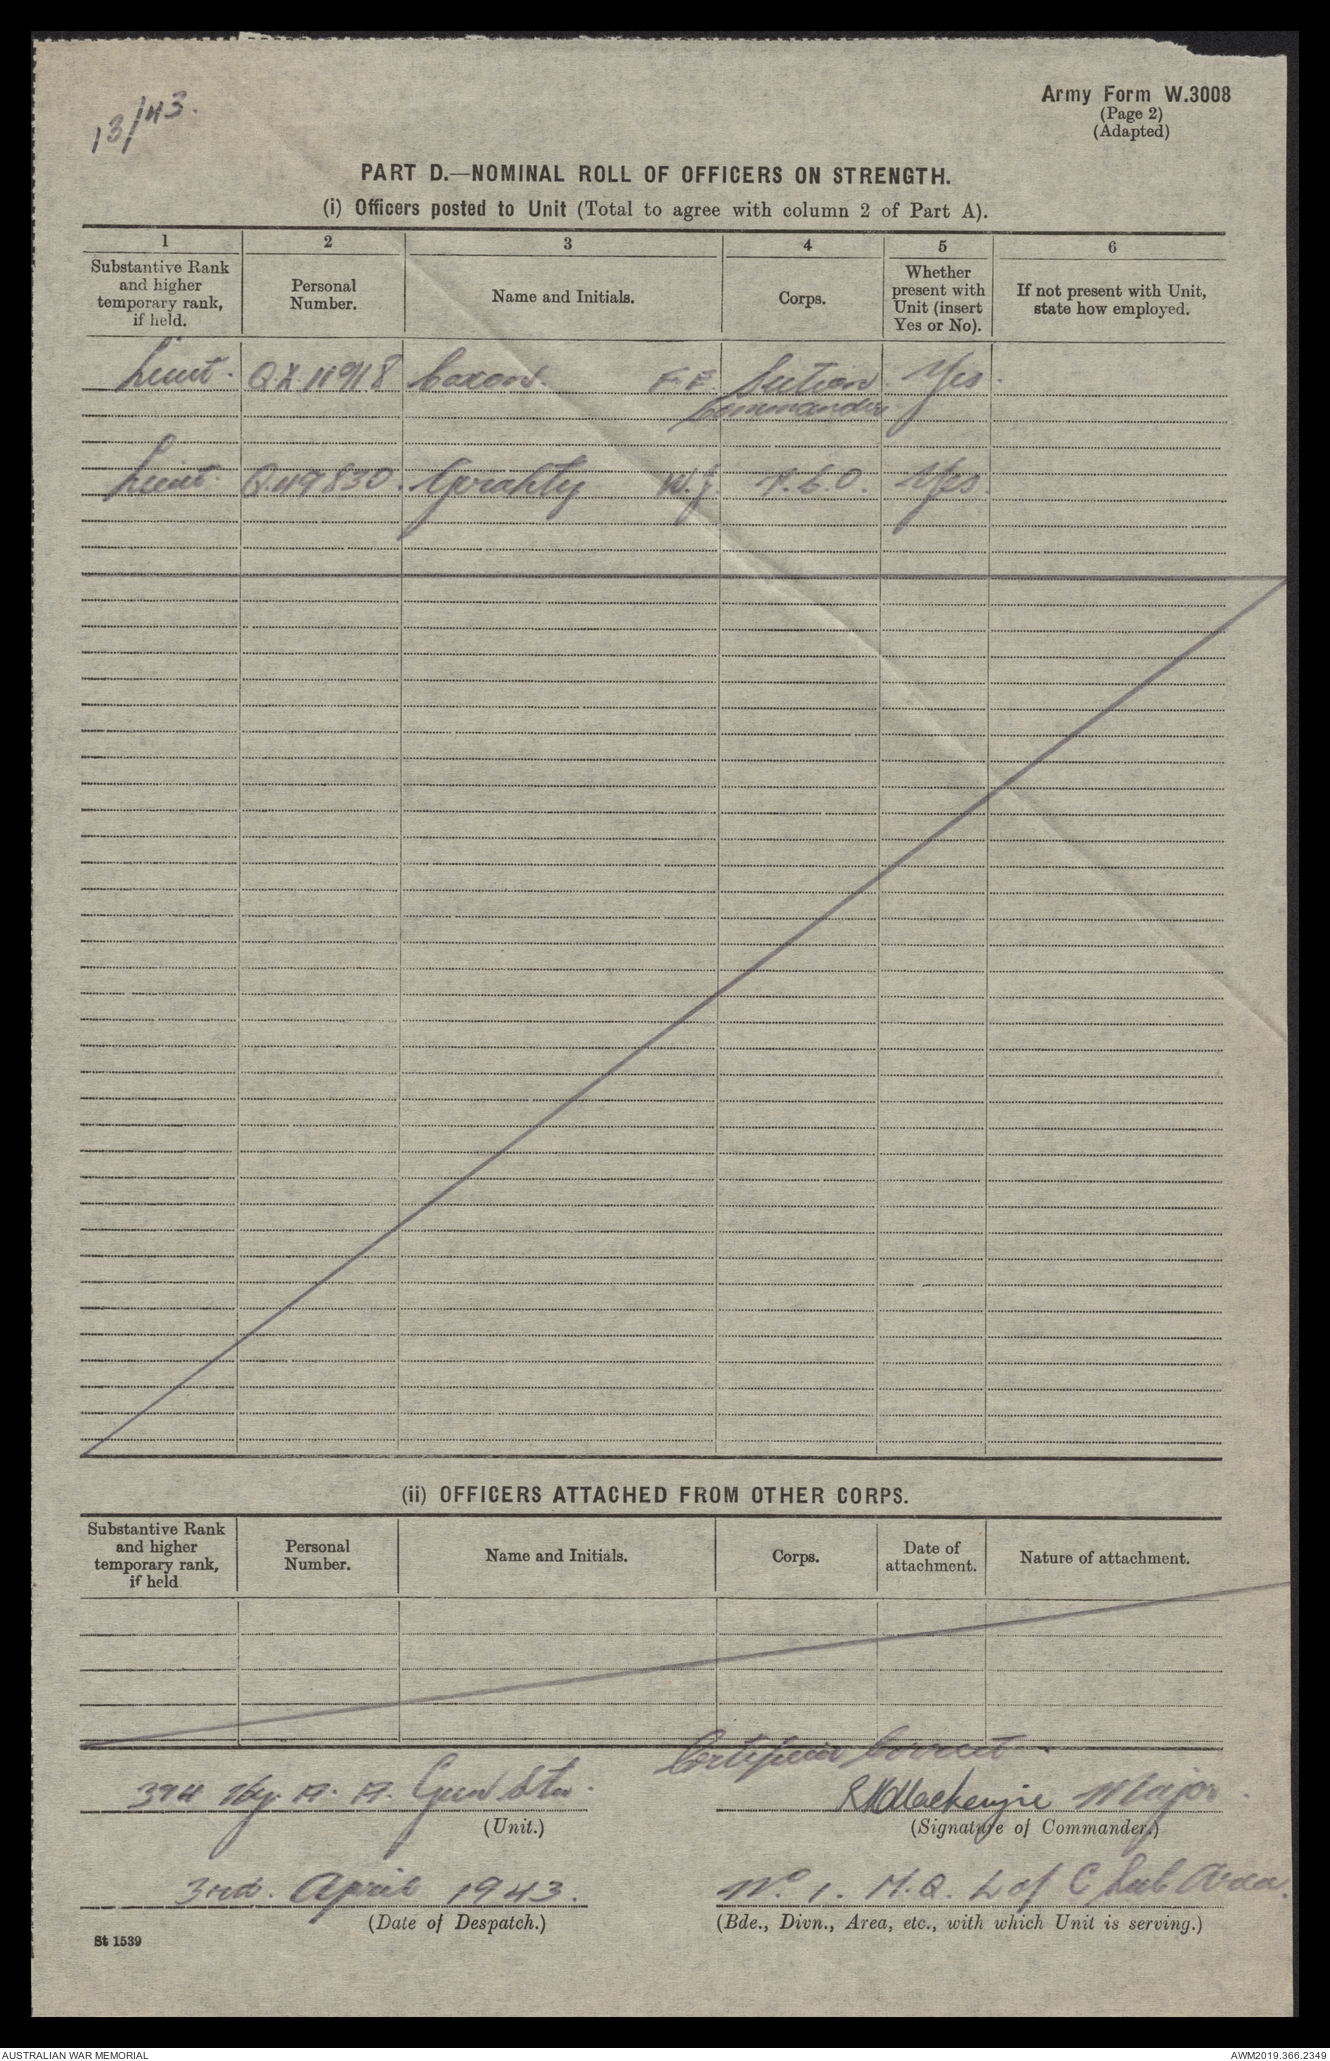 13/43.
Army Form W.3008
(Page 2)
(Adapted)
PART D.—NOMINAL ROLL OF OFFICERS ON STRENGTH.
(i) Officers posted to Unit (Total to agree with column 2 of Part A).
1 2 3 4 5 6
Substantive Rank and higher temporary rank, if held. Personal Number. Name and Initials. Corps. Whether present with Unit (insert Yes or No). If not present with Unit, state how employed.
Lieut. QX 11918 F.E. Section Yes.
Commander
Lieut. Q.49830. Gorahty W.J. Yes.
(ii) OFFICERS ATTACHED FROM OTHER CORPS.
Substantive Rank and higher temporary rank, if held Personal Number. Name and Initials. Corps. Date of attachment. Nature of attachment.
Certified Correct
394 Hy. A. A. Gun Stn. Mackenzie Major.
(Unit.) (Signature of Commander.)
3rd. April 1943. No. 1. H.Q. L of C Sub Area.
(Date of Despatch.) (Bde., Divn., Area, etc., with which Unit is serving.)
St 1539
AUSTRALIAN WAR MEMORIAL AWM2019.366.2349